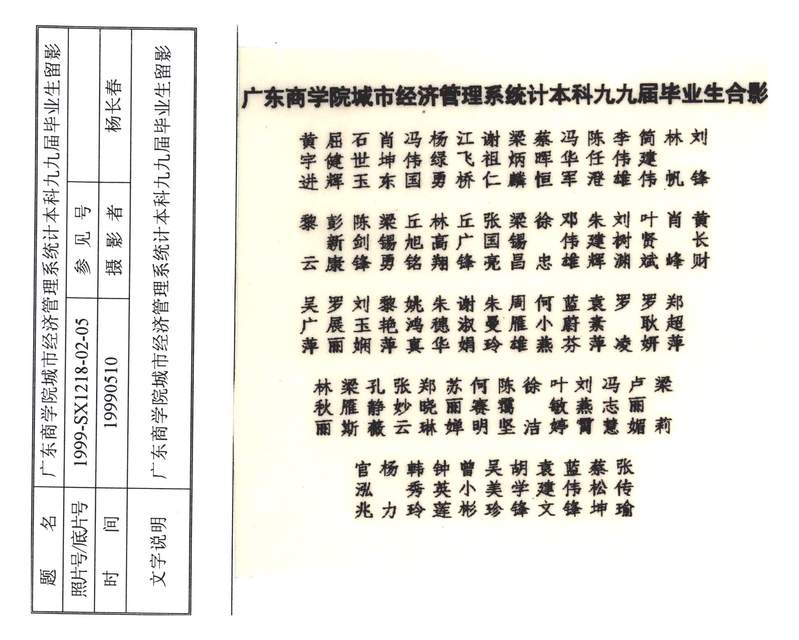 题名 广东商学院城市经济管理系统计本科九九届毕业生留影
照片号/底片号 1999-SX1218-02-05 参见号
时间 19990510 摄影者 杨长春
文字说明 广东商学院城市经济管理系统计本科九九届毕业生留影
广东商学院城市经济管理系统计本科九九届毕业生合影
黄宇进 屈健辉 石世玉 肖坤东 冯伟国 杨绿勇 江飞桥 谢祖仁 梁炳麟 蔡晖恒 冯华军 陈任澄 李伟雄 简建伟 林帆 刘锋
黎云 彭新康 陈剑锋 梁锡勇 丘旭铭 林高翔 丘广锋 张国亮 梁锡昌 徐忠 邓伟雄 朱建辉 刘树渊 叶贤斌 肖峰 黄长财
吴广萍 罗展丽 刘玉娴 黎艳萍 姚鸿真 朱穗华 谢淑娟 朱曼玲 周雁雄 何小燕 蓝蔚芬 袁素萍 罗凌 罗耿妍 郑超萍
林秋丽 梁雁斯 孔静薇 张妙云 郑晓琳 苏丽婵 何赛明 陈霭坚 徐洁 叶敏婷 刘燕霄 冯志慧 卢丽媚 梁莉
官泓兆 杨力 韩秀玲 钟英莲 曾小彬 吴美珍 胡学锋 袁建文 蓝伟锋 蔡松坤 张传瑜